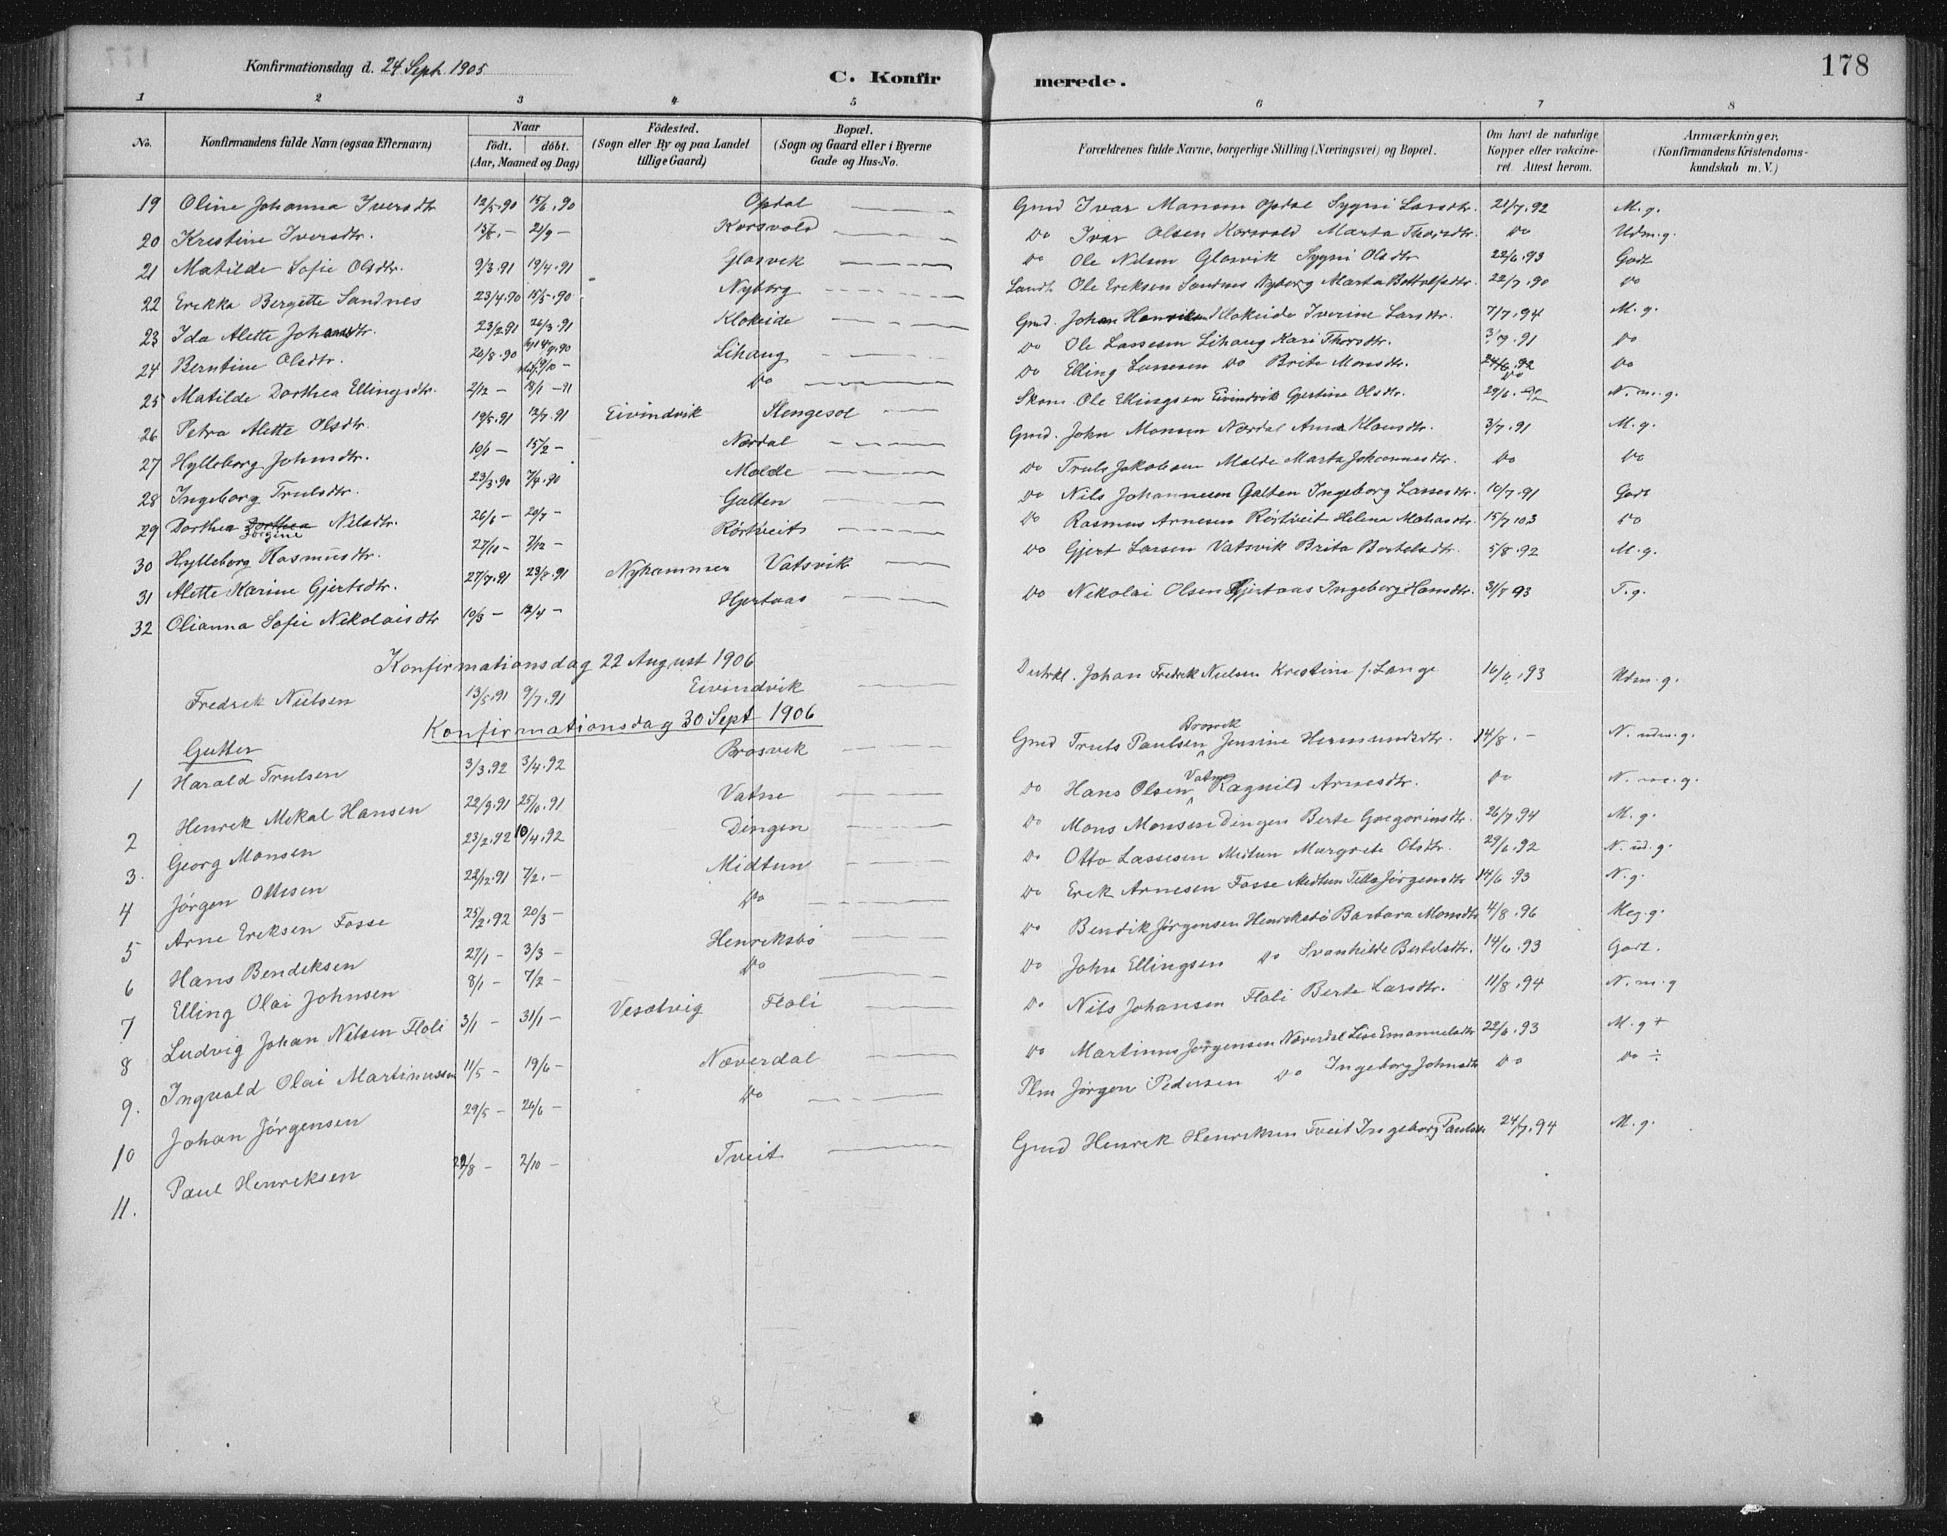 178
Konfirmationsdag d. 24 Sept. 1905
C. Konfirmerede.
1 2 3 4 5 6 7 8
No. Konfirmandens fulde Navn (ogsaa Efternavn) Naar födt. döbt. (Aar, Maaned og Dag) Födested. (Sogn eller By og paa Landet tillige Gaard) Bopæl. (Sogn og Gaard eller i Byerne Gade og Hus-No. Forældrenes fulde Navne, borgerlige Stilling (Næringsvei) og Bopæl. Om havt de naturlige Kopper eller vakcineret. Attest herom. Anmærkninger. (Konfirmandens Kristendomskundskab m. V.)
19 Oline Johanna Iversdtr. 12/5.90 15/6.90 Opdal Gmd Ivar Monsen Opdal Sygni Larsdtr. 21/7.92 M.g.
20 Kristine Iversdtr. 21/9 – Korsvold Do Ivar Olsen Korsvold Marta Thorsdtr. Do Udm.g.
21 Matilde Sofie Olsdtr. 9/3.91 19/4.91 Glosvik Do Ole Nilsen Glosvik Sygni Olsdtr 22/6.93 Godt
22 Erikka Bergette Sandnes 23/4.90 15/5.90 Nyborg Ole Eriksen Sandnes Nyborg Marta 22/7.90 Do
23 Ida Alette Johansdtr. 23/2.91 26/3.91 Klokeide Gmd. Johan Klokeide Iverine Larsdtr. 7/7.94 M.g.
24 Berntine Olsdtr. 20/8.90 Lihaug Do Ole Lassesen Lihaug Kari Thorsdtr. 3/7.91 Do
25 Matilde Dorthea Ellingsdtr. 2/12 – 18/1 –91 Do Do Elling Lassesen Do Brite Monsdtr. 24/6.92 Do
26 Petra Alette Olsdtr. 19/5.91 12/7.91 Eivindvik Slengesol Skom. Ole Ellingsen Eivindvik Gjertine Olsdtr. N.m.g.
27 Hylleborg Johnsdtr. 10/1 – 15/2 – Nordal Gmd. John Monsen Nordal Anna Klausdtr. 3/7.91 M.g.
28 Ingeborg Trulsdtr. 23/3.90 7/4.90 Molde Do Truls Jakobsen Molde Marta Johannesdtr. Do Do
29 Dorthea Dorthea Jorgine Nilsdtr. 26/6 – 20/7 – Galten Do Nils Johannesen Galten Ingeborg Lassesdtr. 10/7.91 Godt
30 Hylleborg Rasmusdtr. 27/10 – 7/12 – Rörtveit Do Rasmus Arnesen Rörtveit Helena 15/7 Do
31 Alette Karine Gjertsdtr. 27/7.91 23/8.91 Nyhammer Vatsvik Do Gjert Larsen Vatsvik Brita Bertelsdtr. 5/8.92 M.g.
32 Olianna Sofie Nikolaisdtr 10/3 – 12/4 – Hjertaas Do Nikolai Olsen Hjertaas Ingeborg Hansdtr. 31/8 93 T.g.
Konfirmationsdag 22 August 1906
Fredrik Nielsen 13/5.91 9/7.91 Eivindvik Johan Fredrik Nielsen Kristine f. Lange 16/6.93 Udm.g.
Konfirmationsdag 30 Sept 1906
Gutter
1 Harald Trulsen 3/3.92 3/4.92 Brosvik Gmd Truls Paulsen Brosvik Jensine Hermundsdtr. 14/8. – N. udm.g.
2 Henrik Mikal Hansen 22/9.91 25/10.91 Vatne Do Hans Olsen Vatne Ragnild Arnesdtr. Do
3. Georg Monsen 23/2.92 10/4.92 Dingen Do Mons Monsen Dingen Berte Gregoriusdtr. 26/7.94 M.g.
4 Jørgen Ottesen 22/12.91 7/2. – Midtun Do Otto Lassesen Midtun Margrete Olsdtr. 29/6.92 N. ud.g.
5 Arne Eriksen Fosse 25/2.92 20/3 – Do Do Erik Arnesen Fosse Midtun Jørgensdtr 14/6 93 N.g.
6 Hans Bendiksen 27/1 – 3/3 – Henriksbø Do Bendik Jørgensen Henriksbø Barbara Monsdtr 4/8.96 Meg.g.
7 Elling Olai Johnsen 8/1 – 7/2 – Do Do John Ellingsen Do Svanhilde Bertelsdtr. 14/6.93 Godt.
8 Ludvig Johan Nilsen Floli 3/1 – 31/1 – Floli Do Nils Johansen Floli Berte Larsdtr. 11/8.94 N.m.g
9. Ingvald Olai Martinussen 11/5 – 19/6 – Næverdal Do Martinus Jørgensen Næverdal Lise Emanuelsdtr 22/6.93 M.g +
10 Johan Jørgensen 29/5 – 26/6 – Do Plm Jørgen Pedersen Do Ingeborg Johnsdtr Do Do ÷
11. Paul Henriksen 2/10 – Tveit Gmd Henrik Henriksen Tveit Ingeborg 24/7.94 M.g.